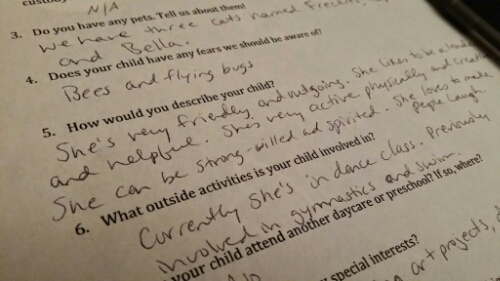 N/A
3. Do you have any pets. Tell us about them!
We have three cats named Freckles,
and Bella.
4. Does your child have any fears we should be aware of?
Bees and flying bugs
5. How would you describe your child?
She's very friendly and outgoing. She likes to be a leader
and helpful. She's very active physically and
She can be strong-willed and spirited. She loves to make
people laugh.
6. What outside activities is your child involved in?
Currently she's in dance class. Previously
involved in gymnastics and swim.
your child attend another daycare or preschool? If so, where?
special interests?
art projects,